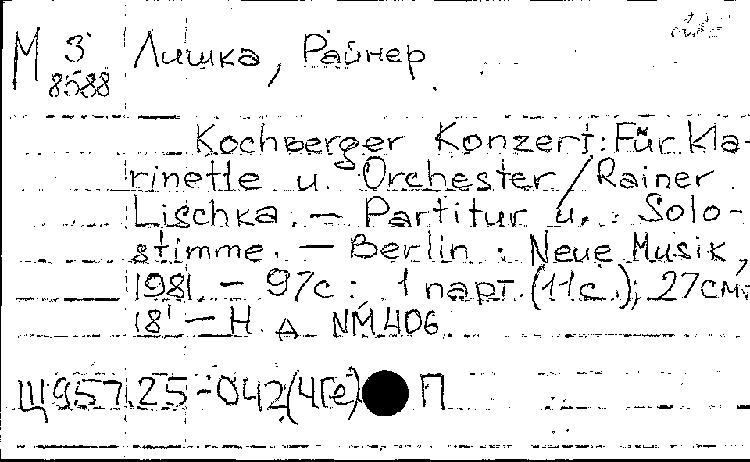 М З Лишка, Райнер
8588
Kochberger Konzert: Für Kla-
rinette u. Orchester / Rainer
Lischka. — Partitur u. Solo-
stimme. — Berlin : Neue Musik,
1981. — 97 с : 1 парт. (11 с.); 27 см.
18¹ — Н. Δ NM 406
Щ957.25-042(4Ге) П